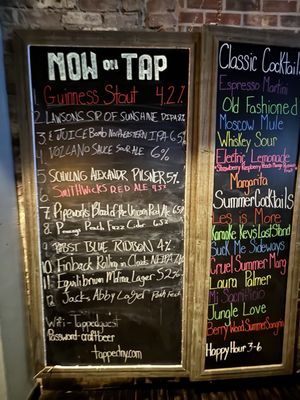 NOW on TAP
1. Guinness Stout 4.2%
2. LAWSONS SIP OF SUNSHINE IPA 8%
3. JUICE Bomb NorthEastern IPA 6.5%
4. VOLCANO SAUCE SOUR ALE 6%
5. PILSNER 5%
6. SMITHWICKS RED ALE 4.5%
7. Pipeworks Blood of the Unicorn Red Ale 6.5%
8. Peach Fuzz Cider
9. PABST BLUE RIBBON 4%
10. Finback Rolling in Clouds NEIPA
11. Equilibrium MaMa Lager 5.2%
12. Jacks Abby Lager
WiFi - Tappedguest
Password - craftbeer
tappedny.com
Classic Cocktails
Espresso Martini
Old Fashioned
Moscow Mule
Whiskey Sour
Electric Lemonade
Strawberry Raspberry Peach Mango
Margarita
Summer Cocktails
Les is More
Karaoke Kevs Last Stand
Suck Me Sideways
Cruel Summer Marg
Laura Palmer
Mi Sacrificio
Jungle Love
Berry Wood Summer Sangria
Happy Hour 3-6